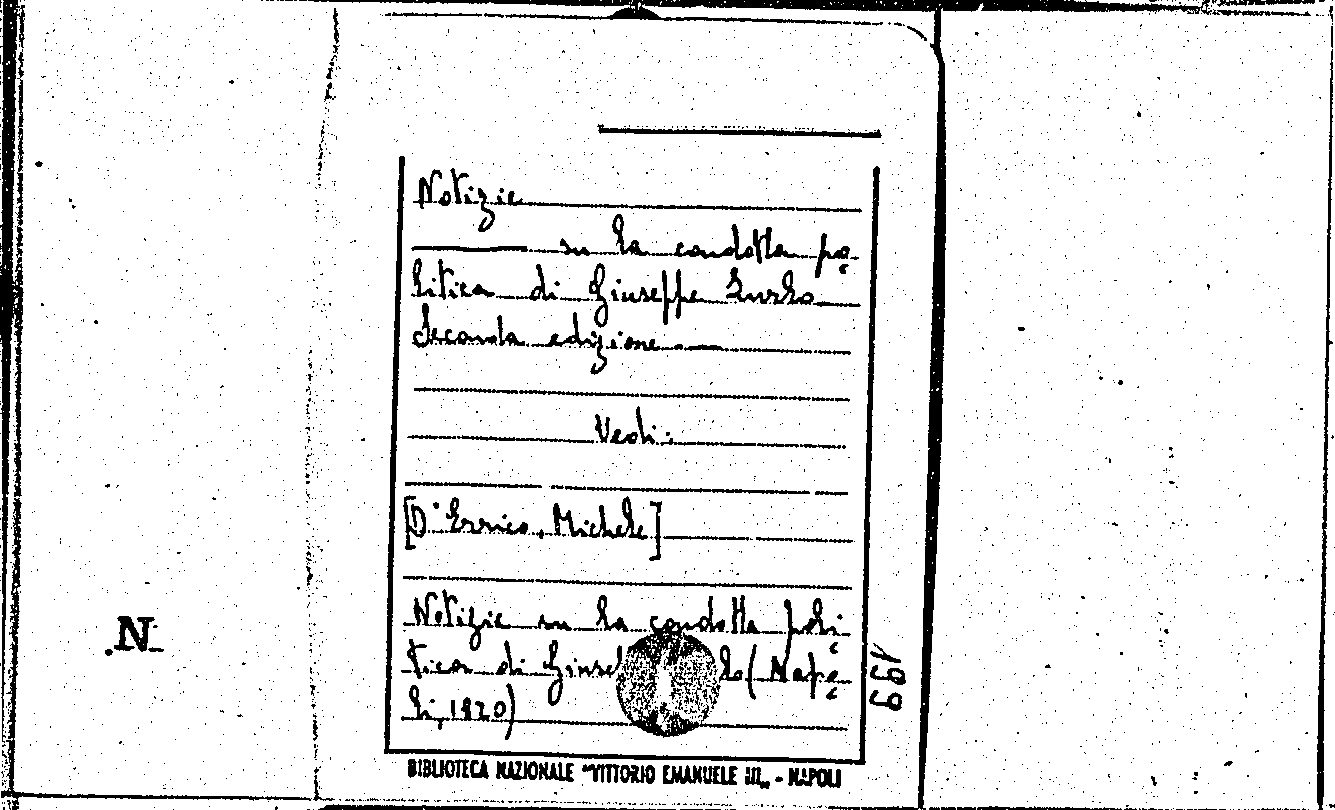 Notizie
su la condotta po
litica di Giuseppe Zurlo
Seconda edizione
Vedi:
[D'Errico, Michele]
Notizie su la condotta poli
tica di Giuse lo (Napo
li, 1820)
199
N
BIBLIOTECA NAZIONALE "VITTORIO EMANUELE III„ - NAPOLI